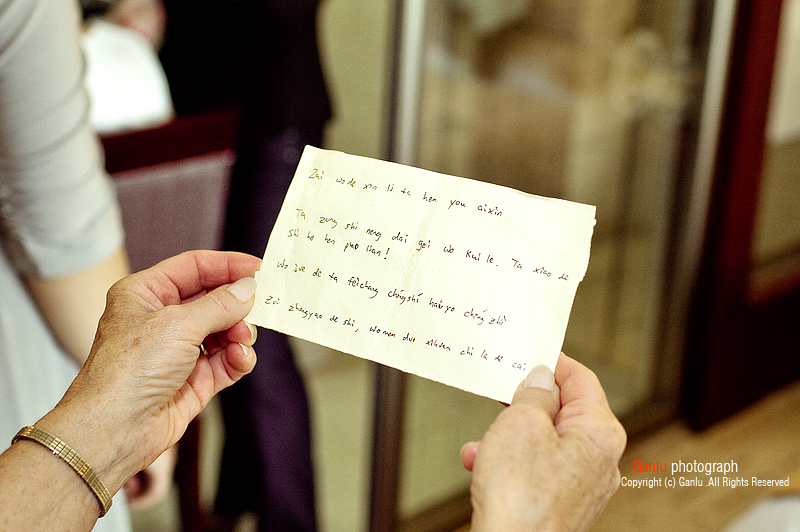 Zai wo de xin li ta hen you aixin
Ta zong shi neng dai gei wo kuile. Ta xiao de
shi he hen piao lian!
Wo jue de ta feichang chéngshí haiyo chéngzhì
Zui zhongyao de shi, women duo xihuan chi la de cai
Ganlu photograph
Copyright (c) Ganlu .All Rights Reserved